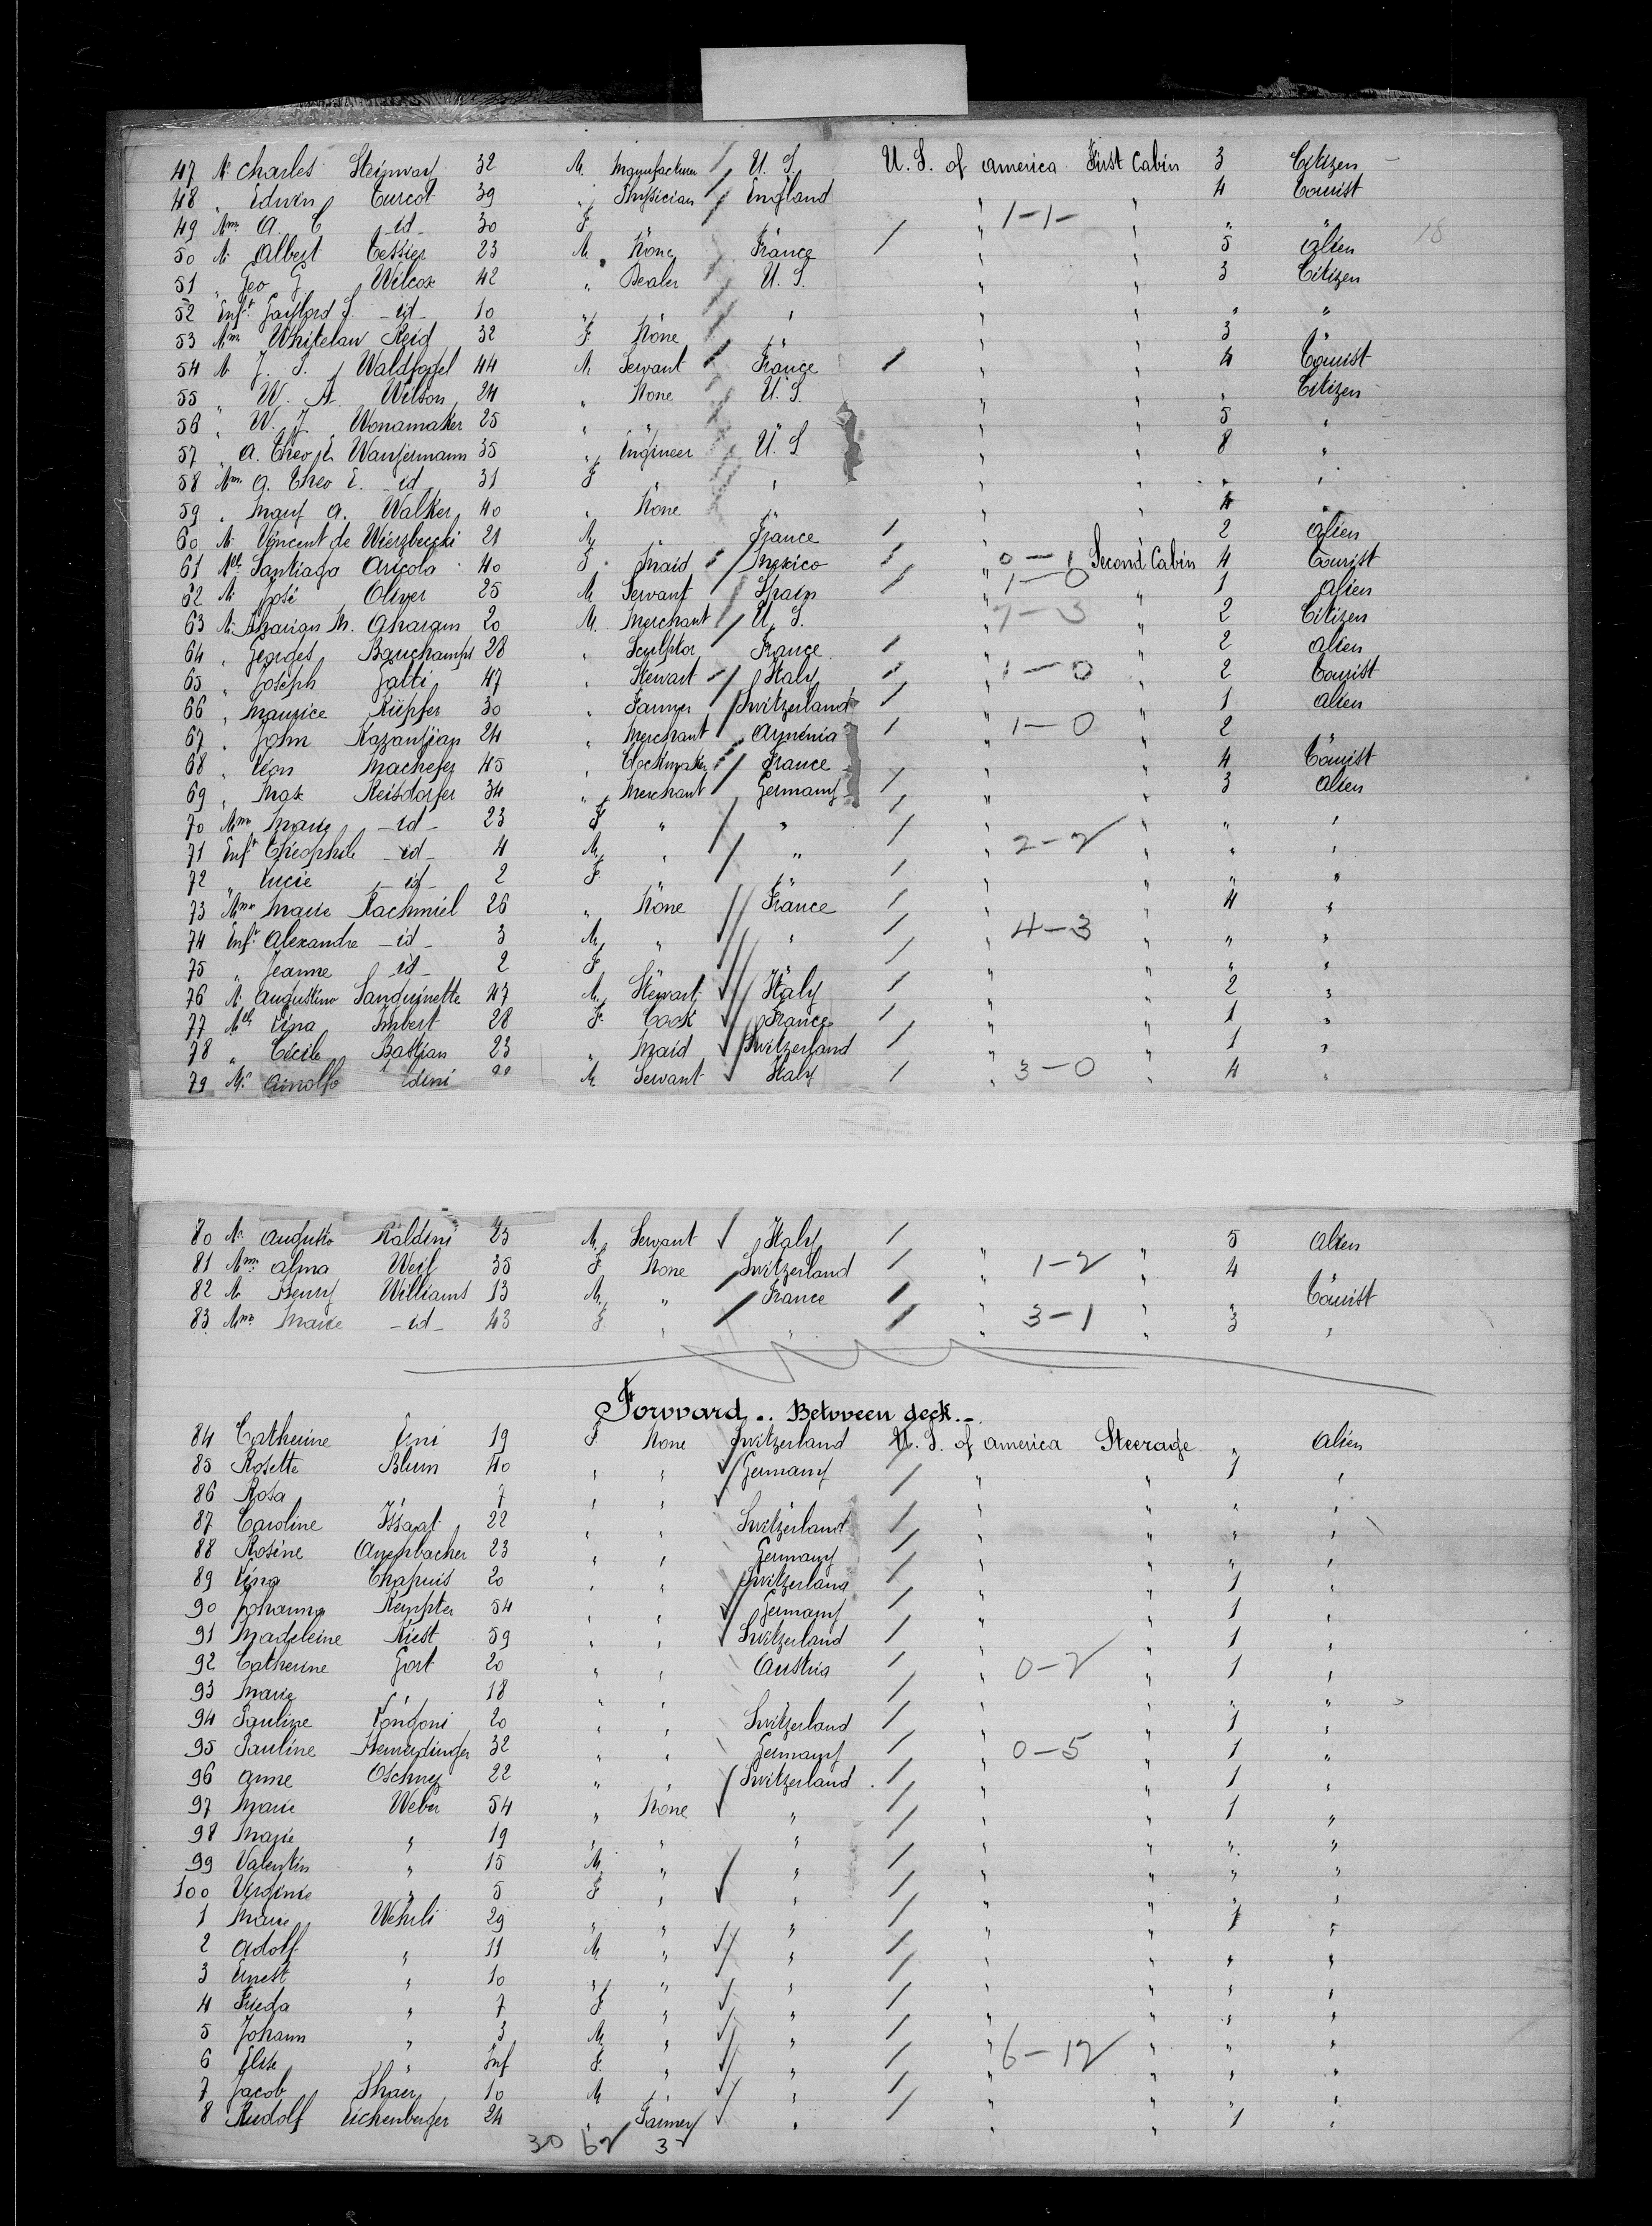 47 Mr Charles Steinway 32 M. Manufacturer U. S. U. S. of america First Cabin 3 Citizen
48 " Edwin Turcot 39 " Physician England " " 4 Tourist
49 Mme A. C _id_ 30 F " " 1-1- " " "
50 Mr Albert Tessier 23 M. None France " " 5 alien 18
51 " Geo G. Wilcox 42 " Dealer U. S. " " 3 Citizen
52 Enft Gaylord S. _id_ 10 " " " " " " "
53 Mme Whitelaw Reid 32 F None " " " 3 "
54 Mr J. S. Waldfogel 44 M. Servant France " " 4 Tourist
55 " W. A. Wilson 24 " None U. S. " " " Citizen
56 " W. J. Wonamaker 25 " " " " " 5 "
57 " A. Theo E. Wangermann 35 " Engineer U. S " " 8 "
58 Mme A. Theo E. _id_ 31 F " " " " " "
59 " A. Walker 40 " None " " " 4 "
60 Mr Vincent de 21 M. " France " " 2 alien
61 Santiago Aricola 40 F. Maid Mexico " 0-1 Second Cabin 4 Tourist
62 Mr José Oliver 25 M. Servant Spain " 1-0 " 1 alien
63 Mr M. 20 M. Merchant U. S. " 7-3 " 2 Citizen
64 " Georges Bauchamps 28 " Sculptor France " " 2 alien
65 " Joseph Gatti 47 " Stewart Italy " 1-0 " 2 Tourist
66 " Maurice Küpfer 30 " Farmer Switzerland " " 1 alien
67 " John Kazanjian 24 " Merchant Armenia " 1-0 " 2 "
68 " Léon Machefer 45 " Clockmaker France " " 4 Tourist
69 " Max Reisdorfer 34 " Merchant Germany " " 3 alien
70 Mme Marie _id_ 23 F " " " " " "
71 Enft Théophile _id_ 4 M. " " " 2-2 " " "
72 " Lucie _id_ 2 F. " " " " " "
73 Mme Marie Rachmiel 26 " None France " " 4 "
74 Enft Alexandre _id_ 3 M. " " " 4-3 " " "
75 " Jeanne _id_ 2 F " " " " " "
76 Mr Augustino Sanguinette 47 M. Stewart Italy " " 2 "
77 Mlle Lina Imbert 28 F. Cook France " " 1 "
78 " Cécile Bastian 23 " Maid Switzerland " " 1 "
79 Mr Arnolfo M Servant Italy " 3-0 " 4 "
80 Mr Augusto Raldini 23 M. Servant Italy 5 alien
81 Mme Alma Weil 35 F None Switzerland " 1-2 " 4 "
82 Mr Henry Williams 13 M. " France " " " Tourist
83 Mme Marie _id_ 43 F. " " " 3-1 " 3 "
Forward .. Between deck.-
84 Catherine 19 F. None Switzerland U. S. of america Steerage " alien
85 Rosette Blum 40 " " Germany " " 1 "
86 Rosa " 7 " " " " " " "
87 Caroline 22 " " Switzerland " " " "
88 Rosine 23 " " Germany " " " "
89 Lina Chapuis 20 " " Switzerland " " 1 "
90 Johanna Kempter 54 " " Germany " " 1 "
91 Madeleine Riest 59 " " Switzerland " " 1 "
92 Catherine Gort 20 " " Austria " 0-2 " 1 "
93 Marie " 18 " " " " " " "
94 Pauline Longoni 20 " " Switzerland " " 1 "
95 Pauline 32 " " Germany " 0-5 " 1 "
96 Anne 22 " " Switzerland " " 1 "
97 Marie Weber 54 " None " " " 1 "
98 Marie " 19 " " " " " " "
99 Valentin " 15 M. " " " " " "
100 Virginie " 5 F " " " " " "
1 Marie Wehrli 29 " " " " " 1 "
2 Adolf " 11 M " " " " " "
3 Ernest " 10 " " " " " " "
4 Frieda " 7 F " " " " " "
5 Johann " 3 M. " " " " " "
6 Elise " Inf F. " " " 6-12 " " "
7 Jacob 10 M " " " " " "
8 Rudolf Eichenberger 24 " Farmer " " " 1 "
30 62 32